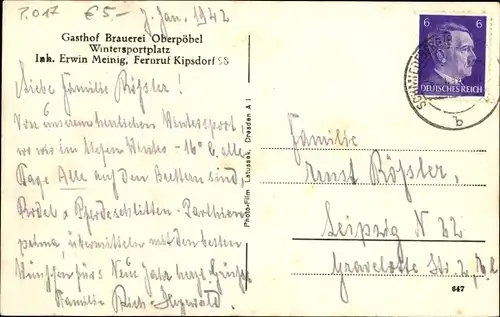 P.017 €5,- 7. Jan. 1942
Gasthof Brauerei Oberpöbel
Wintersportplatz
Inh. Erwin Meinig, Fernruf Kipsdorf 58
Liebe Familie Rößler!
Von unserem herrlichen Wintersport-
wo wir im tiefen Winter -16° C, alle
Tage Alle auf den Brettern sind
Rodel u. Pferdeschlitten-Parthien
übermitteln mit den besten
Wünschen fürs Neue Jahr herzl. Grüße
Familie
Photo-Film-Latussek, Dresden A 1
6 6
DEUTSCHES REICH
b
Familie
Ernst Rößler,
Leipzig N 22
Gravelotte Str. 2
647